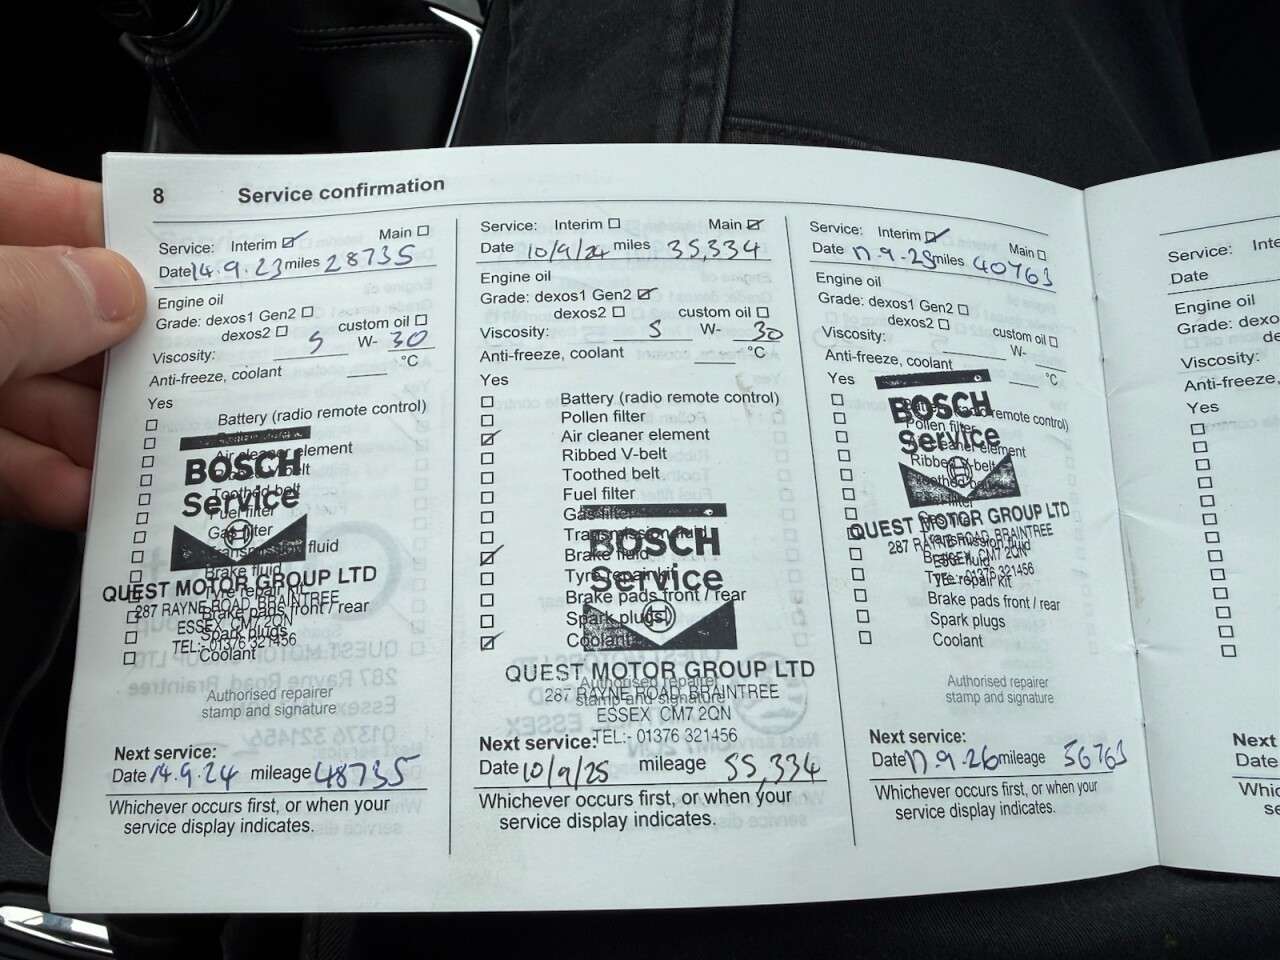 8 Service confirmation
Service: Interim Main
Date 14.9.23 miles 28735
Engine oil
Grade: dexos1 Gen2
dexos2 custom oil
Viscosity: 5 W- 30
Anti-freeze, coolant °C
Yes
Battery (radio remote control)
Air cleaner element
BOSCH
Toothed belt
Service
Fuel filter
Gas filter
Transmission fluid
Brake fluid
QUEST MOTOR GROUP LTD
Tyre repair kit
287 RAYNE ROAD, BRAINTREE
Brake pads front / rear
ESSEX CM7 2QN
Spark plugs
TEL:- 01376 321456
Coolant
Authorised repairer
stamp and signature
Next service:
Date 14.9.24 mileage 48735
Whichever occurs first, or when your
service display indicates.
Service: Interim Main
Date 10/9/24 miles 35,334
Engine oil
Grade: dexos1 Gen2
dexos2 custom oil
Viscosity: 5 W- 30
Anti-freeze, coolant °C
Yes
Battery (radio remote control)
Pollen filter
Air cleaner element
Ribbed V-belt
Toothed belt
Fuel filter
Gas filter
Transmission fluid
BOSCH
Brake fluid
Tyre repair kit
Service
Brake pads front / rear
Spark plugs
Coolant
QUEST MOTOR GROUP LTD
Authorised repairer
287 RAYNE ROAD, BRAINTREE
stamp and signature
ESSEX CM7 2QN
TEL:- 01376 321456
Next service:
Date 10/9/25 mileage 55,334
Whichever occurs first, or when your
service display indicates.
Service: Interim Main
Date 17.9.25 miles 40763
Engine oil
Grade: dexos1 Gen2
dexos2 custom oil
Viscosity: W-
Anti-freeze, coolant °C
Yes
Battery (radio remote control)
BOSCH
Pollen filter
Service
Air cleaner element
Ribbed V-belt
Toothed belt
QUEST MOTOR GROUP LTD
287 RAYNE ROAD, BRAINTREE
Transmission fluid
ESSEX CM7 2QN
TEL:- 01376 321456
Tyre repair kit
Brake pads front / rear
Spark plugs
Coolant
Authorised repairer
stamp and signature
Next service:
Date 17.9.26 mileage 56763
Whichever occurs first, or when your
service display indicates.
Service: Inte
Date
Engine oil
Grade: dexo
de
Viscosity:
Anti-freeze,
Yes
Next
Date
Whic
se